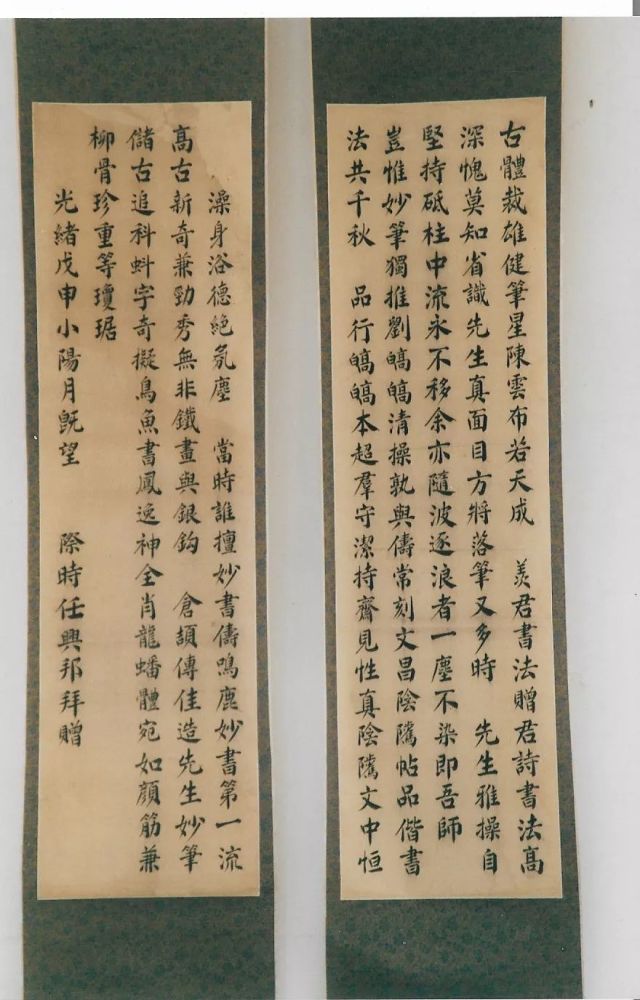 古體裁雄健筆星陳雲布若天成　羨君書法贈君詩書法高
深愧莫知省識先生真面目方將落筆又多時　先生雅操自
堅持砥柱中流永不移余亦隨波逐浪者一塵不染即吾師
豈惟妙筆獨推劉皜皜清操孰與儔常刻文昌陰隲帖品偕書
法共千秋　品行皜皜本超羣守潔持齋見性真陰隲文中恒
澡身浴德絕氛塵　當時誰擅妙書儔鳴鹿妙書第一流
高古新奇兼勁秀無非鐵畫與銀鈎　倉頡傳佳造先生妙筆
儲古追科蚪字奇擬鳥魚書鳳逸神全肖龍蟠體宛如顏筋兼
柳骨珍重等瓊琚
光緒戊申小陽月既望　際時任興邦拜贈